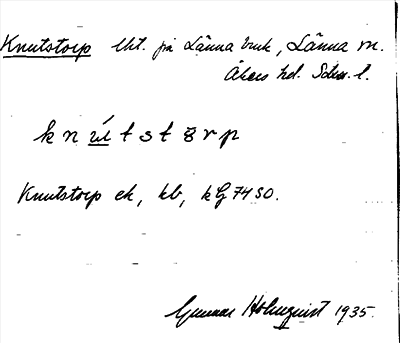 Knutstorp lht. på Länna bruk, Länna sn.
Åkers hd. Södm. l.
k n ú t s t ȣ r p
Knutstorp ek, kb, kG 74 SO.
Gunnar Holmquist 1935.